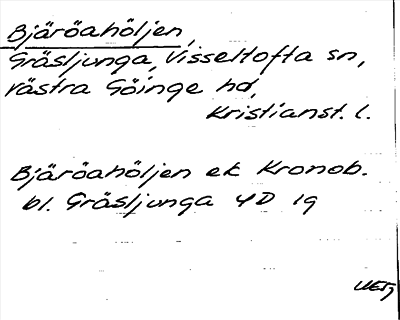 Bjäröahöljen,
Gräsljunga, Visseltofta sn,
Västra Göinge hd,
Kristianst. l.
Bjäröahöljen ek Kronob.
bl. Gräsljunga 4D 1g